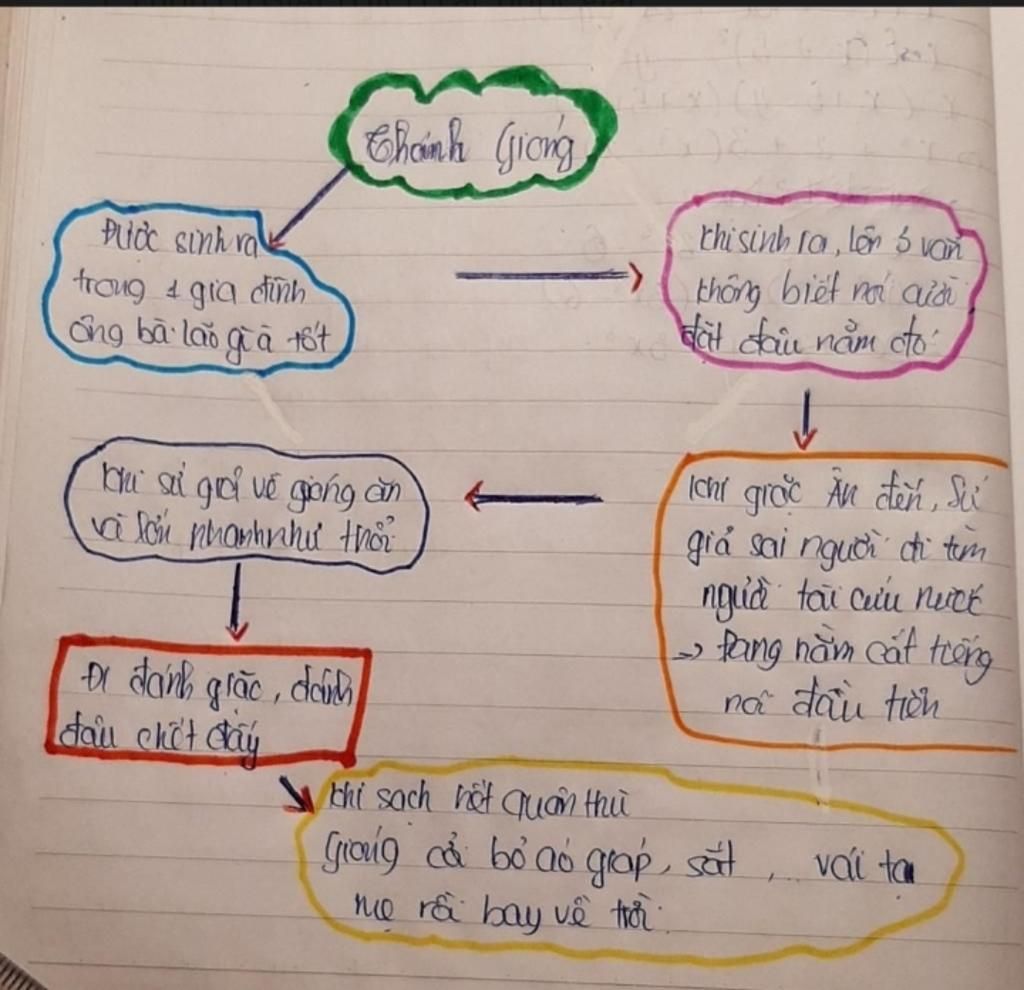 Thánh Gióng
Được sinh ra
trong 1 gia đình
ông bà lão già tốt
Khi sinh ra, lên 3 vẫn
không biết nói cười
đặt đâu nằm đó
Khi giặc Ân đến, Sứ
giả sai người đi tìm
người tài cứu nước
→ Đang nằm cất tiếng
nói đầu tiên
Khi sứ giả về gióng ăn
và lớn nhanh như thổi
Đi đánh giặc, đánh
đâu chết đấy
Khi sạch hết quân thù
Gióng cởi bỏ áo giáp, sắt, ... vái tạ
mẹ rồi bay về trời.